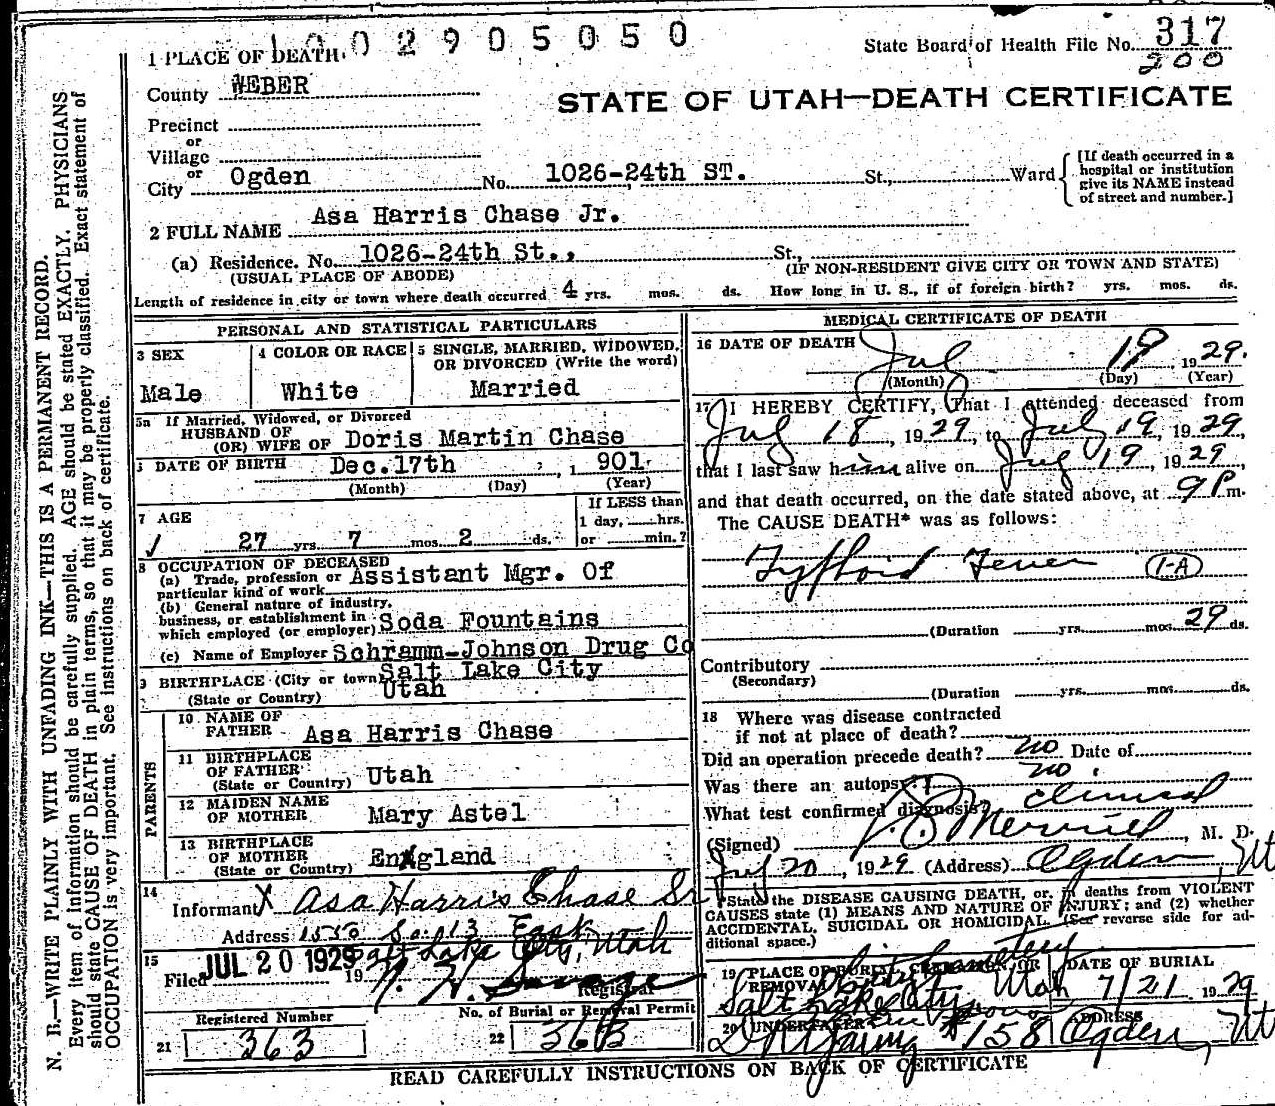 1002905050
State Board of Health File No. 317
200
1 PLACE OF DEATH
County WEBER
STATE OF UTAH—DEATH CERTIFICATE
Precinct
or
Village
or
City Ogden No. 1026-24th ST. St., Ward
[If death occurred in a hospital or institution give its NAME instead of street and number.]
2 FULL NAME Asa Harris Chase Jr.
(a) Residence. No. 1026-24th St., St.,
(USUAL PLACE OF ABODE) (IF NON-RESIDENT GIVE CITY OR TOWN AND STATE)
Length of residence in city or town where death occurred 4 yrs. mos. ds. How long in U. S., if of foreign birth? yrs. mos. ds.
PERSONAL AND STATISTICAL PARTICULARS
3 SEX
Male
4 COLOR OR RACE
White
5 SINGLE, MARRIED, WIDOWED,
OR DIVORCED (Write the word)
Married
5a If Married, Widowed, or Divorced
HUSBAND OF
(OR) WIFE OF Doris Martin Chase
DATE OF BIRTH Dec. 17th , 1 901.
(Month) (Day) (Year)
7 AGE
27 yrs. 7 mos. 2 ds.
If LESS than
1 day, hrs.
or min.?
8 OCCUPATION OF DECEASED
(a) Trade, profession or Assistant Mgr. Of
particular kind of work
(b) General nature of industry,
business, or establishment in Soda Fountains
which employed (or employer)
(c) Name of Employer Schramm-Johnson Drug Co
9 BIRTHPLACE (City or town) Salt Lake City
Utah
(State or Country)
PARENTS
10 NAME OF
FATHER Asa Harris Chase
11 BIRTHPLACE
OF FATHER Utah
(State or Country)
12 MAIDEN NAME
OF MOTHER Mary Astel
13 BIRTHPLACE
OF MOTHER England
(State or Country)
14
Informant X Asa Harris Chase Sr
Address 1550 So. 13 East
Salt Lake City, Utah
15
Filed JUL 20 1929 19
Registrar
Registered Number
21 363
No. of Burial or Removal Permit
22 363
MEDICAL CERTIFICATE OF DEATH
16 DATE OF DEATH July 19, 1929.
(Month) (Day) (Year)
17 I HEREBY CERTIFY, That I attended deceased from
July 18, 1929, to July 19, 1929,
that I last saw him alive on July 19, 1929,
and that death occurred, on the date stated above, at 9 P m.
The CAUSE DEATH* was as follows:
Tyfhoid Fever (1-A)
(Duration yrs. mos. 29 ds.
Contributory
(Secondary)
(Duration yrs. mos. ds.
18 Where was disease contracted
if not at place of death?
Did an operation precede death? no Date of
Was there an autopsy? no.
What test confirmed diagnosis? clinical
(Signed) Merrill, M. D.
July 20, 1929 (Address) Ogden, Ut
*State the DISEASE CAUSING DEATH, or, in deaths from VIOLENT
CAUSES state (1) MEANS AND NATURE OF INJURY; and (2) whether
ACCIDENTAL, SUICIDAL OR HOMICIDAL. (See reverse side for ad-
ditional space.)
19 PLACE OF BURIAL, CREMATION, OR
REMOVAL City Cemetery
Salt Lake City, Utah
DATE OF BURIAL
7/21 1929
20 UNDERTAKER
#158
ADDRESS
Ogden, Ut
READ CAREFULLY INSTRUCTIONS ON BACK OF CERTIFICATE
N. B.—WRITE PLAINLY WITH UNFADING INK—THIS IS A PERMANENT RECORD.
Every item of information should be carefully supplied. AGE should be stated EXACTLY. PHYSICIANS
should state CAUSE OF DEATH in plain terms, so that it may be properly classified. Exact statement of
OCCUPATION is very important. See instructions on back of certificate.